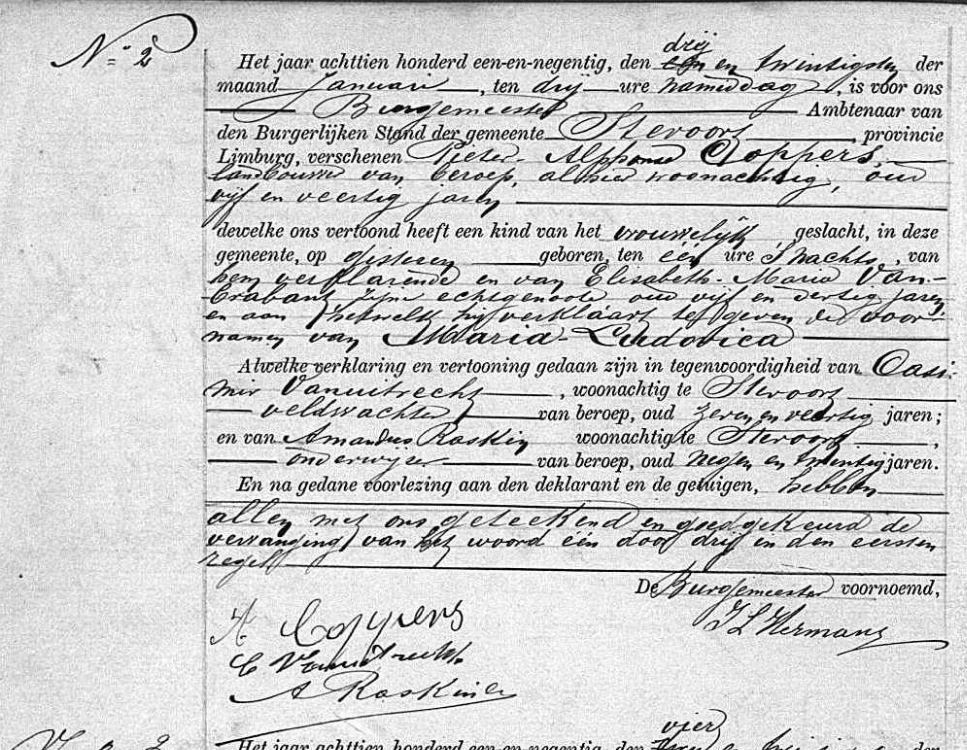 N.º 2
drij
Het jaar achttien honderd een-en-negentig, den een en twintigsten der
maand Januari, ten drij ure namiddag, is voor ons
Burgemeester Ambtenaar van
den Burgerlijken Stand der gemeente Stevoort provincie
Limburg, verschenen Pieter-Alphonse Coppers,
landbouwer van beroep, alhier woonachtig, oud
vijf en veertig jaren
dewelke ons vertoond heeft een kind van het vrouwelijk geslacht, in deze
gemeente, op gisteren geboren, ten één ure 's nachts, van
hem verklarende en van Elisabeth-Maria Van-
brabant zijne echtgenoote oud vijf en dertig jaren
en aan hetwelk hij verklaart te geven de voor-
namen van Maria-Ludovica
Alwelke verklaring en vertooning gedaan zijn in tegenwoordigheid van Casi-
mir Vanuitrecht, woonachtig te Stevoort
veldwachter van beroep, oud zeven en veertig jaren;
en van Amandus Raskin woonachtig te Stevoort,
onderwijzer van beroep, oud negen en twintig jaren.
En na gedane voorlezing aan den deklarant en de getuigen, hebben
allen met ons geteekend en goedgekeurd de
vervanging van het woord één door drij in den eersten
regel
De Burgemeester voornoemd,
A Coppers
J L Hermans
C Vanuitrecht
A Raskin
vier
Het jaar achttien honderd een-en-negentig, den en der